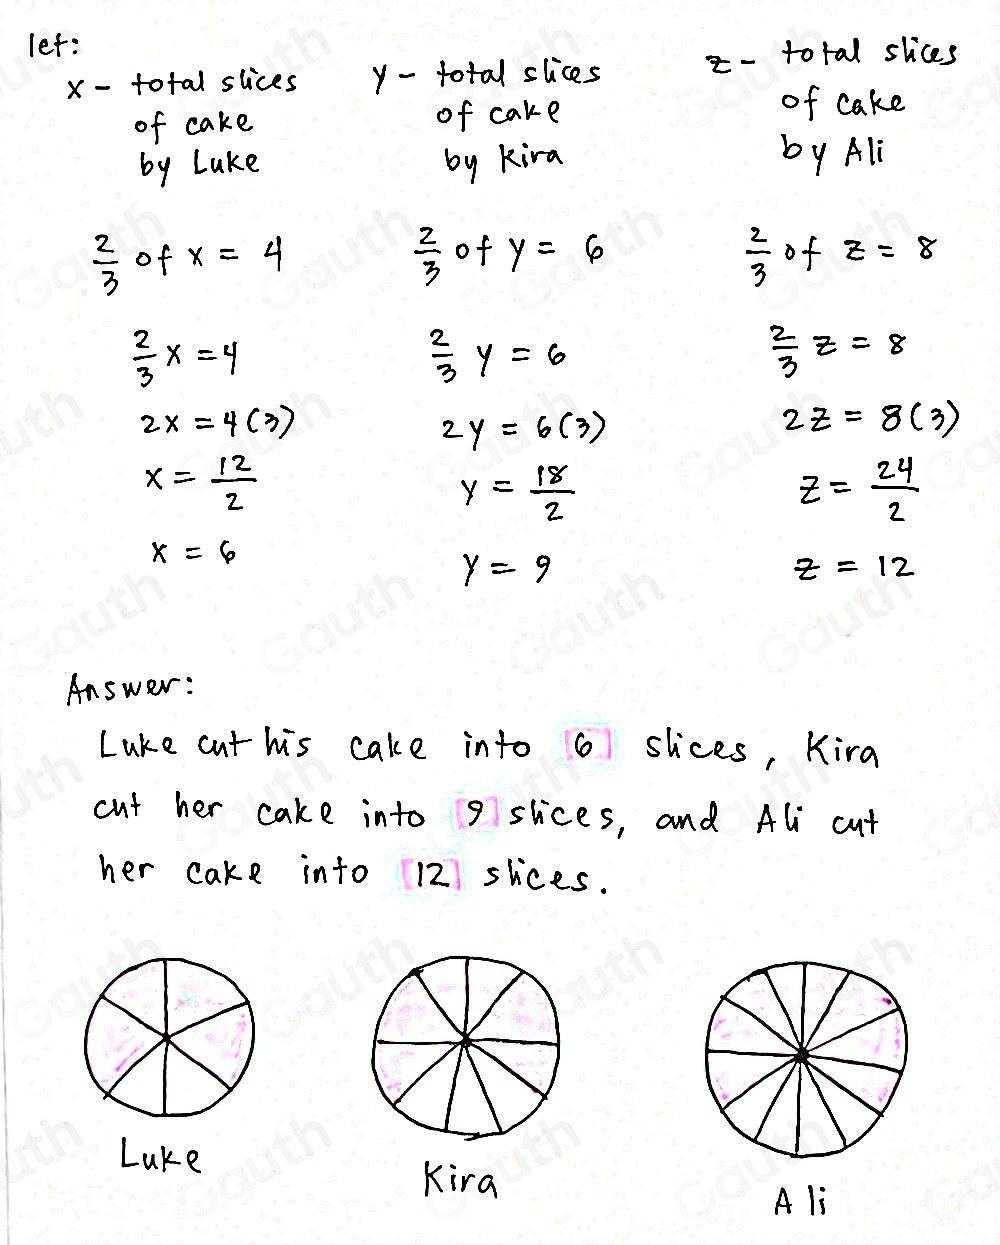 let:
x - total slices
of cake
by Luke
y - total slices
of cake
by Kira
z - total slices
of cake
by Ali
2/3 of x = 4
2/3 x = 4
2x = 4(3)
x = 12/2
x = 6
2/3 of y = 6
2/3 y = 6
2y = 6(3)
y = 18/2
y = 9
2/3 of z = 8
2/3 z = 8
2z = 8(3)
z = 24/2
z = 12
Answer:
Luke cut his cake into [6] slices, Kira
cut her cake into [9] slices, and Ali cut
her cake into [12] slices.
Luke
Kira
Ali
Gauth